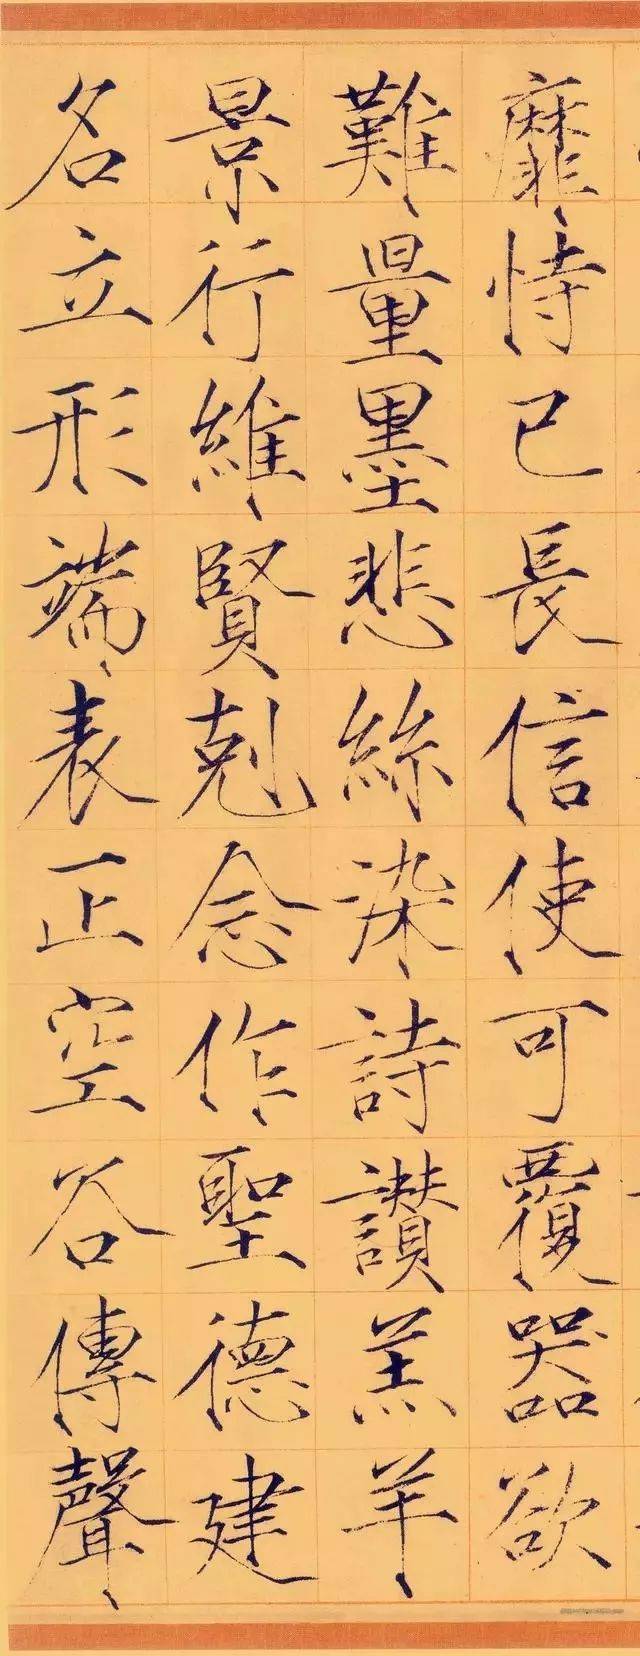 靡恃已長信使可覆器欲
難量墨悲絲染詩讃羔羊
景行維賢剋念作聖德建
名立形端表正空谷傳聲